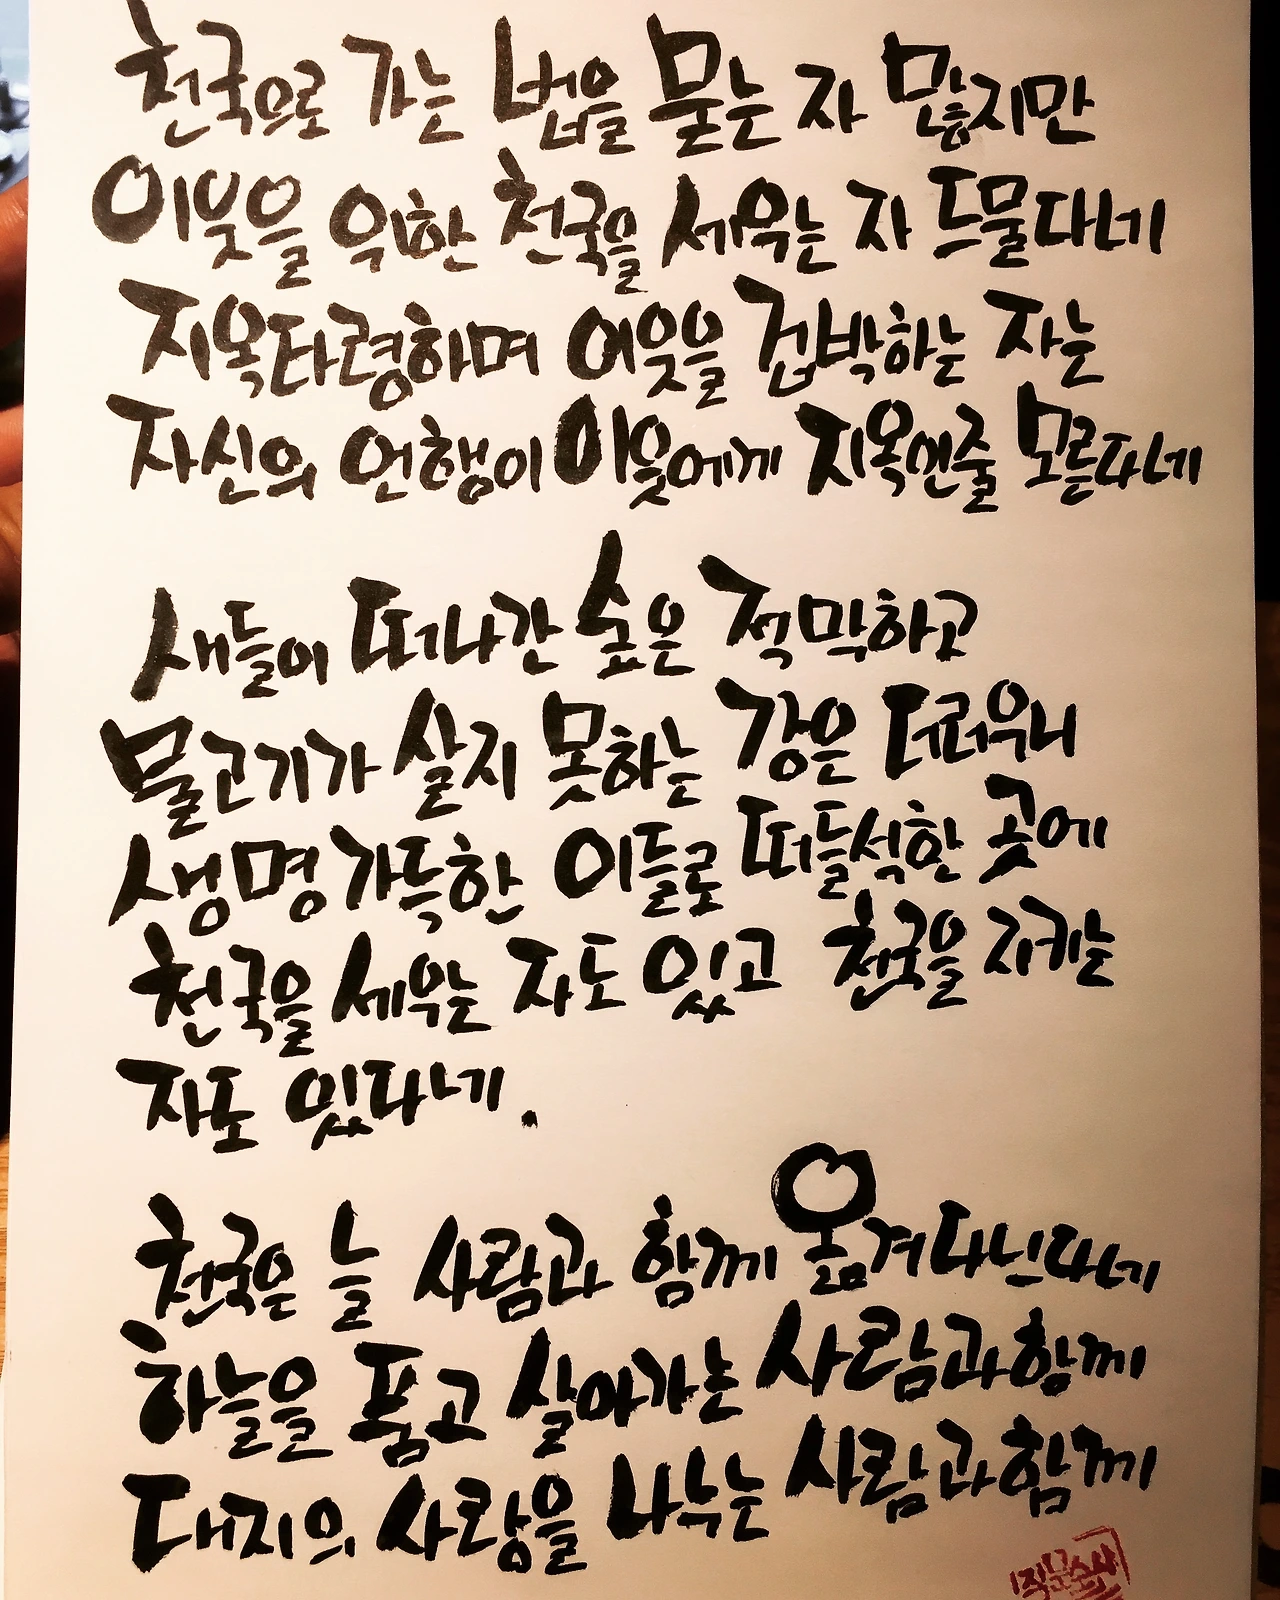 천국으로 가는 법을 묻는 자 많지만
이웃을 위한 천국을 세우는 자 드물다네
지옥타령하며 이웃을 겁박하는 자는
자신의 언행이 이웃에게 지옥인줄 모른다네
새들이 떠나간 숲은 적막하고
물고기가 살지 못하는 강은 더러우니
생명 가득한 이들로 떠들석한 곳에
천국을 세우는 자도 있고 천국을 지키는
자도 있다네.
천국은 늘 사람과 함께 옮겨다닌다네
하늘을 품고 살아가는 사람과 함께
대지의 사랑을 나누는 사람과 함께